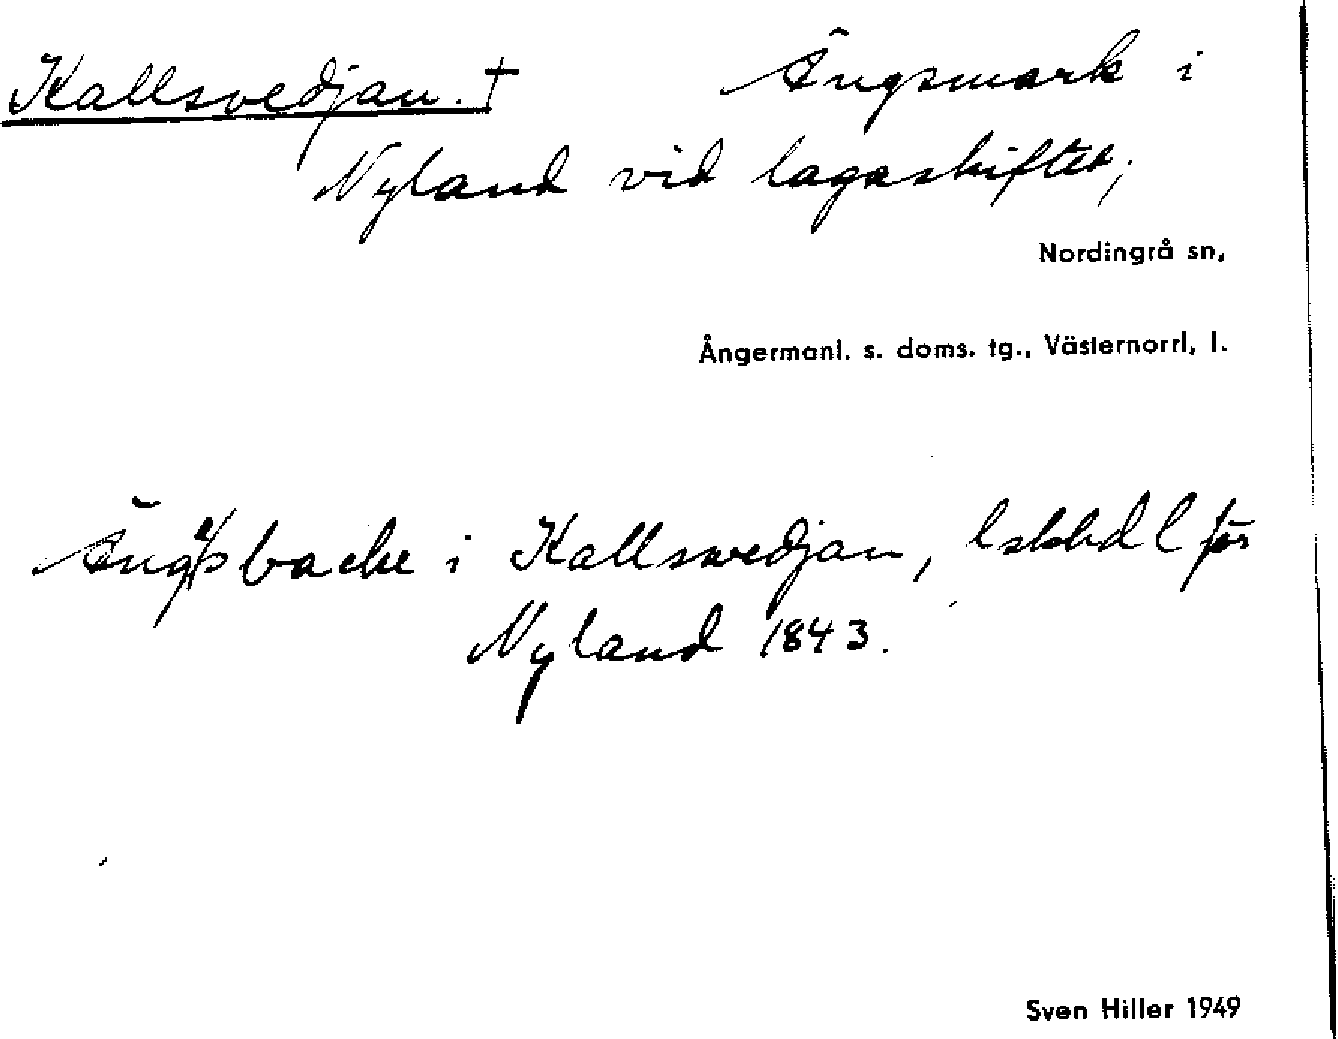 Kallsvedjan. † Ängsmark i
Nyland vid lagaskiftet;
Nordingrå sn,
Ångermanl. s. doms. tg., Västernorrl. l.
Ängsbacke i Kallswedjan, lskhdl för
Nyland 1843.
Sven Hiller 1949